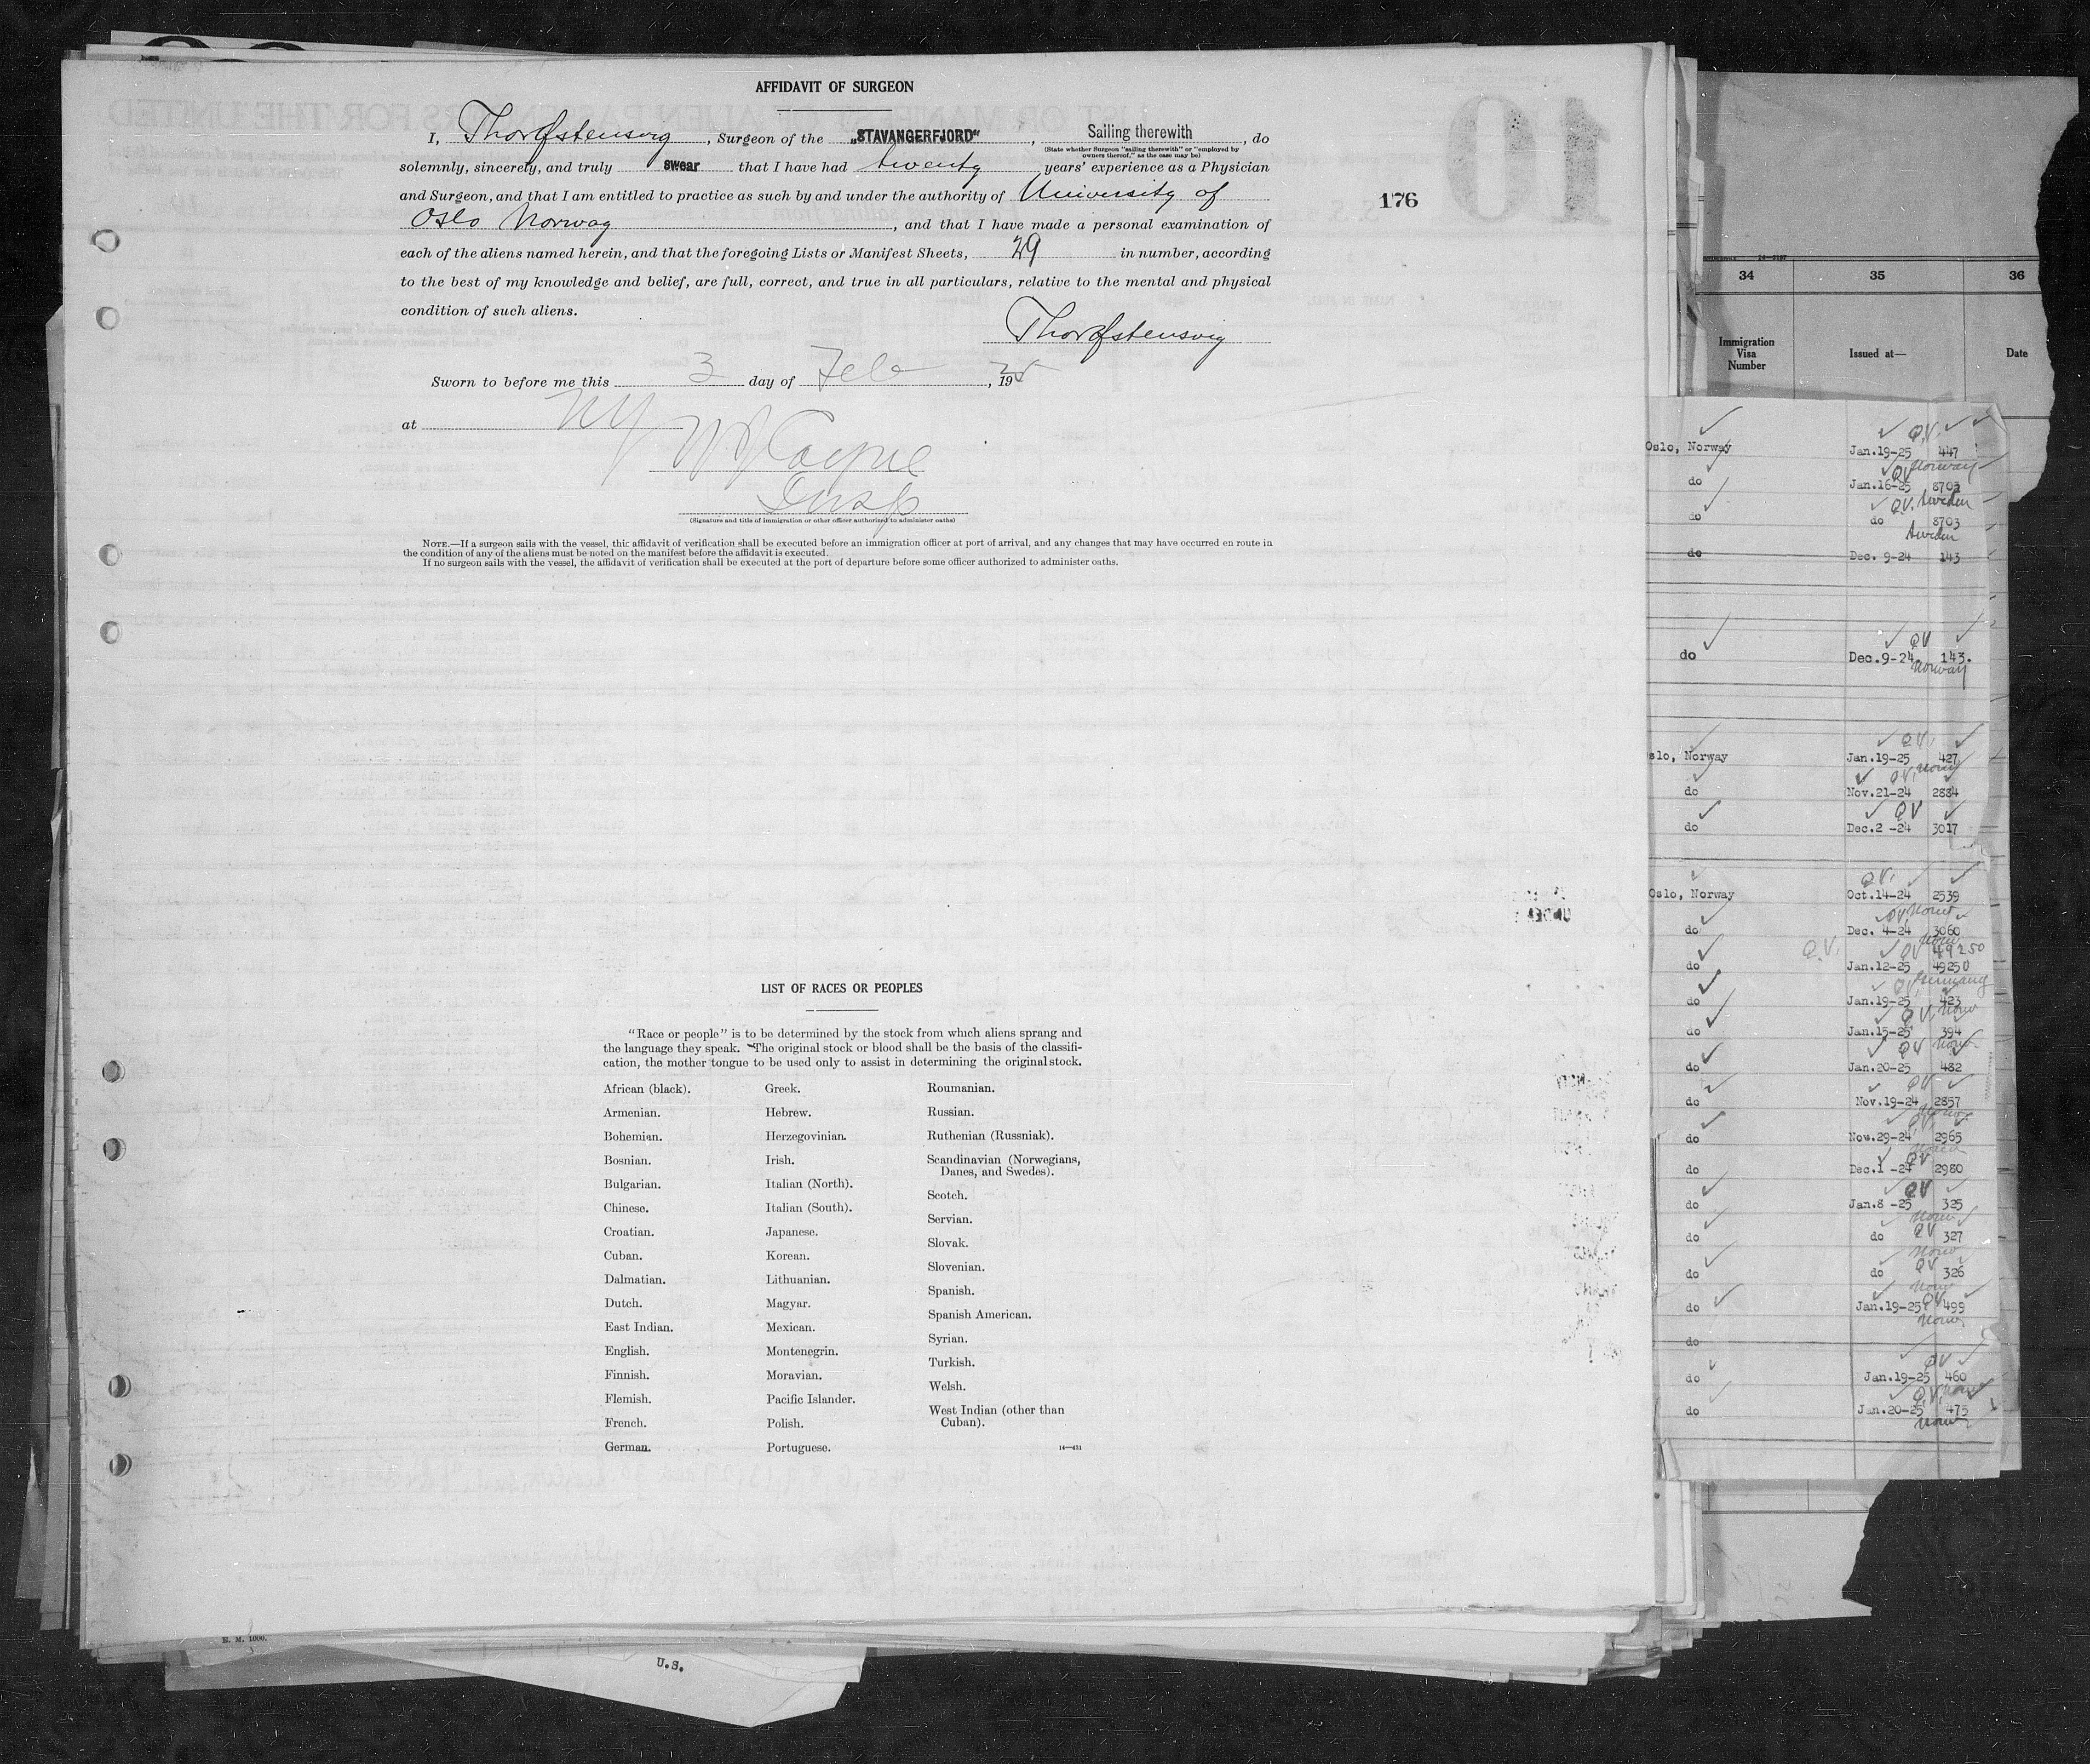 AFFIDAVIT OF SURGEON
I, , Surgeon of the „STAVANGERFJORD“, Sailing therewith, do
(State whether Surgeon "sailing therewith" or "employed by
owners thereof," as the case may be)
solemnly, sincerely, and truly swear that I have had twenty years' experience as a Physician
and Surgeon, and that I am entitled to practice as such by and under the authority of University of
Oslo Norway, and that I have made a personal examination of
each of the aliens named herein, and that the foregoing Lists or Manifest Sheets, 29 in number, according
to the best of my knowledge and belief, are full, correct, and true in all particulars, relative to the mental and physical
condition of such aliens.
Sworn to before me this 3 day of Feb, 1925
at NY
Insp
(Signature and title of immigration or other officer authorized to administer oaths)
NOTE.—If a surgeon sails with the vessel, this affidavit of verification shall be executed before an immigration officer at port of arrival, and any changes that may have occurred en route in
the condition of any of the aliens must be noted on the manifest before the affidavit is executed.
If no surgeon sails with the vessel, the affidavit of verification shall be executed at the port of departure before some officer authorized to administer oaths.
176
10
LIST OF RACES OR PEOPLES
"Race or people" is to be determined by the stock from which aliens sprang and
the language they speak. The original stock or blood shall be the basis of the classifi-
cation, the mother tongue to be used only to assist in determining the original stock.
African (black).
Armenian.
Bohemian.
Bosnian.
Bulgarian.
Chinese.
Croatian.
Cuban.
Dalmatian.
Dutch.
East Indian.
English.
Finnish.
Flemish.
French.
German.
Greek.
Hebrew.
Herzegovinian.
Irish.
Italian (North).
Italian (South).
Japanese.
Korean.
Lithuanian.
Magyar.
Mexican.
Montenegrin.
Moravian.
Pacific Islander.
Polish.
Portuguese.
Roumanian.
Russian.
Ruthenian (Russniak).
Scandinavian (Norwegians,
Danes, and Swedes).
Scotch.
Servian.
Slovak.
Slovenian.
Spanish.
Spanish American.
Syrian.
Turkish.
Welsh.
West Indian (other than
Cuban).
14—431
34 35 36
Immigration
Visa
Number
Issued at—
Date
Q.V.
Oslo, Norway Jan.19-25 447
QV Norway
do Jan.16-25 8703
Q.V. Sweden
do do 8703
Sweden
do Dec. 9-24 143
QV
do Dec.9-24 143.
Norway
Q.V.
slo, Norway Jan.19-25 427
QV. Norw
do Nov.21-24 2884
QV
do Dec.2 -24 3017
QV.
Oslo, Norway Oct.14-24 2539
QV
do Dec. 4-24 3060
Norw
Q.V. QV 49250
do Jan.12-25 49250
QV. Germany
do Jan.19-25 423
QV Norw
do Jan.15-25 394
QV Norw
do Jan.20-25 482
QV
do Nov.19-24 2857
Norw
QV
do Nov.29-24 2965
QV
do Dec.1 -24 2980
QV
do Jan.8 -25 325
Norw
QV
do do 327
Norw
QV
do do 326
Norw
QV
do Jan.19-25 499
Norw
do
QV
do Jan.19-25 460
QV. Norw
do Jan.20-25 475
Norw
R. M. 1600.
U.S.